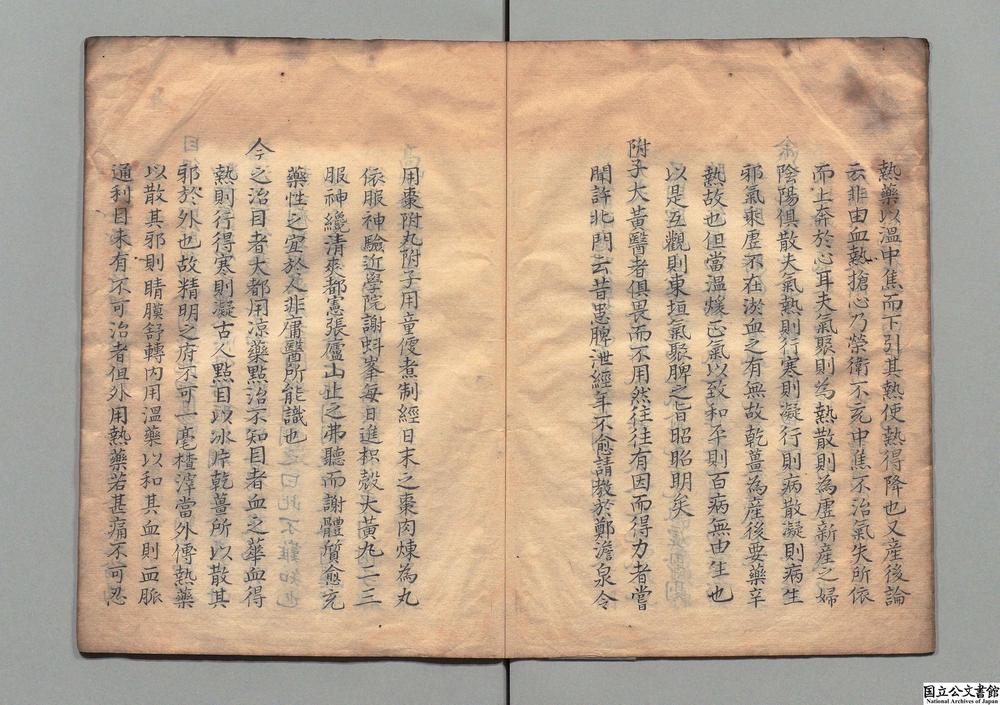 熱藥以溫中焦而下引其熱使熱得降也又產後論
云非由血熱搶心乃榮衛不充中焦不治氣失所依
而上奔於心耳夫氣聚則為熱散則為虛新產之婦
陰陽俱散夫氣熱則行寒則凝行則病散凝則病生
邪氣乘虛不在淤血之有無故乾薑為產後要藥辛
熱故也但當溫煖正氣以致和平則百病無由生也
以是互觀則東垣氣聚脾之旨昭昭明矣
附子大黃醫者俱畏而不用然往往有因而得力者嘗
聞許北門云昔患脾泄經年不愈請教於鄭澹泉令
用棗附丸附子用童便煮制經日末之棗肉煉為丸
依服神驗近學院謝蚪峯每日進枳殼大黃丸二三
服神纔清爽都憲張廬山止之弗聽而謝體質愈充
藥性之宜於人非庸醫所能識也
今之治目者大都用凉藥點治不知目者血之華血得
熱則行得寒則凝古人點目以冰片乾薑所以散其
邪於外也故精明之府不可一毫楂滓當外傅熱藥
以散其邪則睛膜舒轉內用溫藥以和其血則血脈
通利目未有不可治者但外用熱藥若甚痛不可忍
国立公文書館
National Archives of Japan